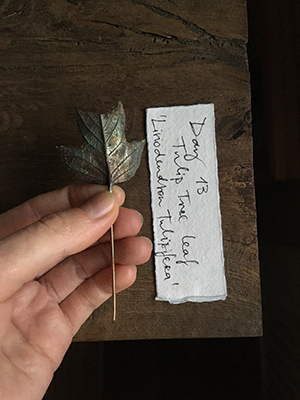 Day 13
Tulip Tree Leaf
'Liriodendron Tulipifera'